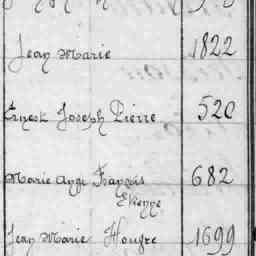 Jean Marie 1822
Ernest Joseph Pierre 520
Marie Ange François 682
Etienne
Jean Marie 1699